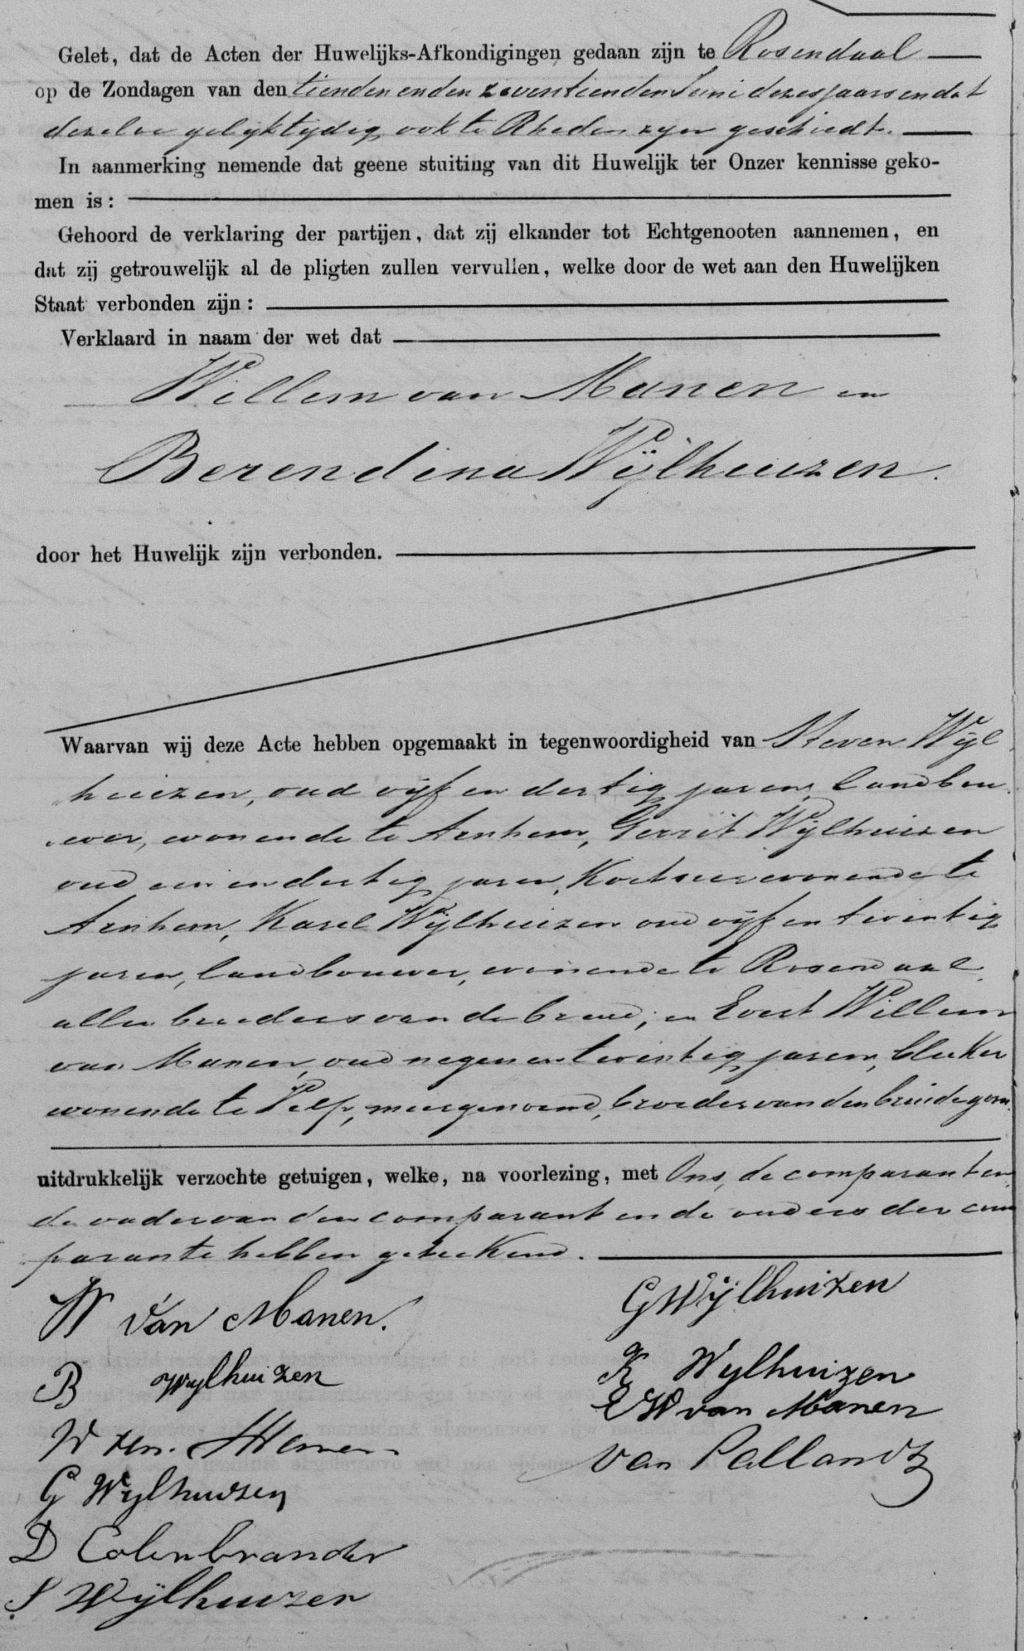 Gelet, dat de Acten der Huwelijks-Afkondigingen gedaan zijn te Rosendaal
op de Zondagen van den tienden en den zeventienden Juni dezes jaars en dat
dezelve gelijktijdig ook te Rheden zijn geschiedt.
In aanmerking nemende dat geene stuiting van dit Huwelijk ter Onzer kennisse geko-
men is:
Gehoord de verklaring der partijen, dat zij elkander tot Echtgenooten aannemen, en
dat zij getrouwelijk al de pligten zullen vervullen, welke door de wet aan den Huwelijken
Staat verbonden zijn:
Verklaard in naam der wet dat
Willem van Manen en
Berendina Wijlhuizen.
door het Huwelijk zijn verbonden.
Waarvan wij deze Acte hebben opgemaakt in tegenwoordigheid van Steven Wijl
huizen, oud vijf en dertig jaren, landbou
wer, wonende te Arnhem, Gerrit Wijlhuizen
oud een en dertig jaren, Koetsier wonende te
Arnhem, Karel Wijlhuizen oud vijf en twintig
jaren, landbouwer, wonende te Rosendaal,
allen broeders van de bruid; en Evert Willem
van Manen, oud negen en twintig jaren, bleeker
wonende te Velp, meergenoemd, broeder van den bruidegom
uitdrukkelijk verzochte getuigen, welke, na voorlezing, met Ons, de comparanten
de vader van den comparant en de ouders der com
parante hebben geteekend.
W van Manen.
B Wylhuizen
W van Manen
G Wylhuizen
D Colenbrander
S Wÿlhuizen
G Wÿlhuizen
K Wylhuizen
E W van Manen
van Pallandt